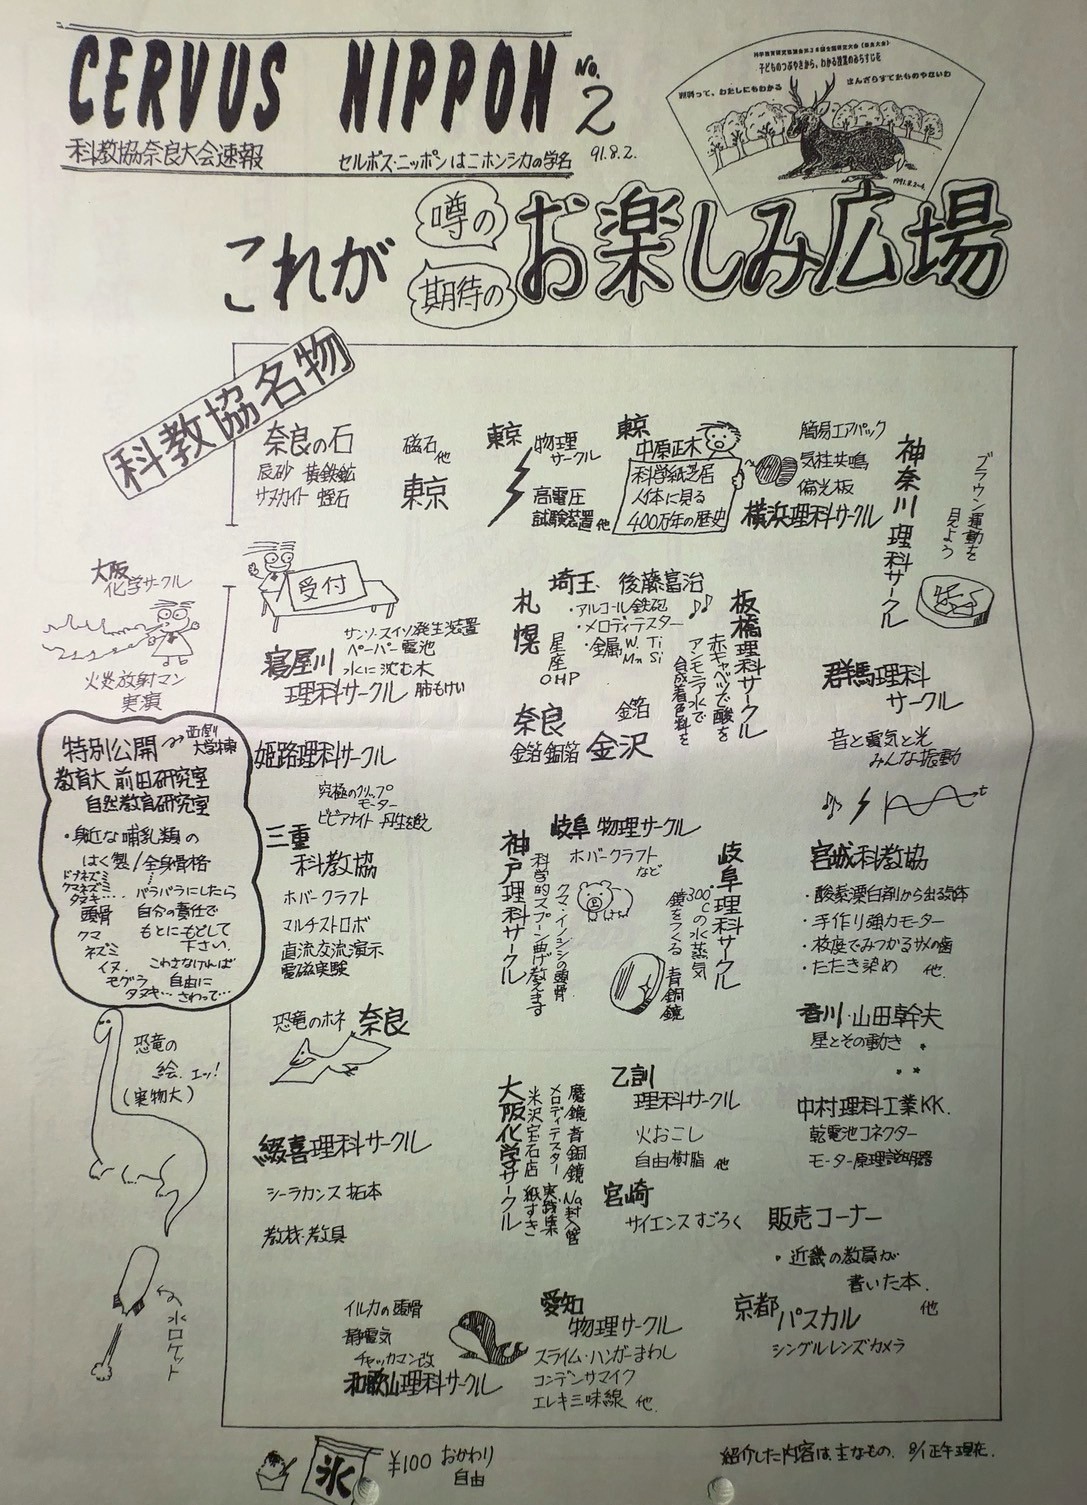 CERVUS NIPPON No.2
科教協奈良大会速報
セルボス・ニッポンはニホンジカの学名
91.8.2.
科学教育研究協議会第38回全国研究大会(奈良大会)
子どものつぶやきから、わかる授業のあらすじを
理科って、わたしにもわかる
1991.8.2~4.
これが
噂の
期待の
お楽しみ広場
科教協名物
奈良の石
辰砂 黄鉄鉱
サヌカイト 蛭石
磁石
他
東京
東京
物理
サークル
高電圧
試験装置 他
東京
中原正木
科学紙芝居
人体に見る
400万年の歴史
簡易エアパック
気柱共鳴
偏光板
横浜理科サークル
神奈川理科サークル
ブラウン運動を
見よう
大阪
化学サークル
火炎放射マン
実演
受付
サンソ・スイソ発生装置
ペーパー電池
水に沈む木
寝屋川
理科サークル 肺もけい
札幌
星座OHP
埼玉 後藤富治
・アルコール鉄砲
・メロディテスター
・金属 W. Ti
Mn Si
板橋理科サークル
赤キャベツで酸を
アンモニア水で
合成着色料を
群馬理科
サークル
音と電気と光
みんな振動
t
奈良
金箔銅箔
金箔
金沢
特別公開
西側
大学棟
教育大 前田研究室
自然教育研究室
・身近な哺乳類の
はく製/全身骨格
ドブネズミ
クマネズミ
タヌキ…
バラバラにしたら
自分の責任で
もとにもどして
下さい.
頭骨
クマ
ネズミ
イヌ.
モグラ
タヌキ…
こわさなければ
自由に
さわって…
姫路理科サークル
究極のクリップ
モーター
三重
科教協
ホバークラフト
マルチストロボ
直流交流演示
電磁実験
岐阜物理サークル
ホバークラフト
など
神戸理科サークル
科学的スプーン曲げ教えます
クマ・イノシシの頭骨
岐阜理科サークル
300℃の水蒸気
鏡をつくる 青銅鏡
宮城科教協
・酸素漂白剤から出る気体
・手作り強力モーター
・校庭でみつかるサメの歯
・たたき染め 他.
恐竜のホネ 奈良
恐竜の
絵.エッ!
(実物大)
香川・山田幹夫
星とその動き
大阪化学サークル
魔鏡 青銅鏡 Na封入管
メロディテスター 実践集
米沢宝石店 紙すき
乙訓
理科サークル
火おこし
自由樹脂 他
中村理科工業KK.
乾電池コネクター
モーター原理説明器
綴喜理科サークル
シーラカンス拓本
教材・教具
宮崎
サイエンスすごろく
販売コーナー
・近畿の教員が
書いた本.
他
水ロケット
イルカの頭骨
静電気
チャッカマン改
和歌山理科サークル
愛知
物理サークル
スライム・ハンガーまわし
コンデンサマイク
エレキ三味線 他.
京都
パスカル
シングルレンズカメラ
氷
¥100 おかわり
自由
紹介した内容は主なもの. 8/1正午現在.